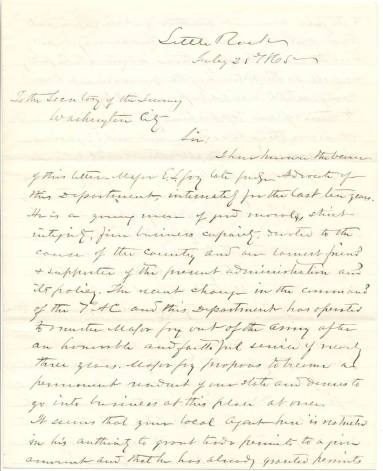 Little Rock
July 25th 1865
To the Secretary of the Treasury
Washington City
Sir:
I have known the bearer
of this letter, Major E L Joy late Judge Advocate of
this Department, intimately for the last ten years.
He is a young man of good morals, strict
integrity, fine business capacity, devoted to the
cause of the Country and an earnest friend
& supporter of the present administration and
its policy. The recent change in the command
of the 7th AC and this Department has operated
to muster Major Joy out of the army after
an honorable and faithful service of nearly
three years. Major Joy proposes to become a
permanent resident of your state and desires to
go into business at this place at once.
It seems that your local Agent here is restricted
in his authority to grant trade permits to a given
amount and that he has already granted permits